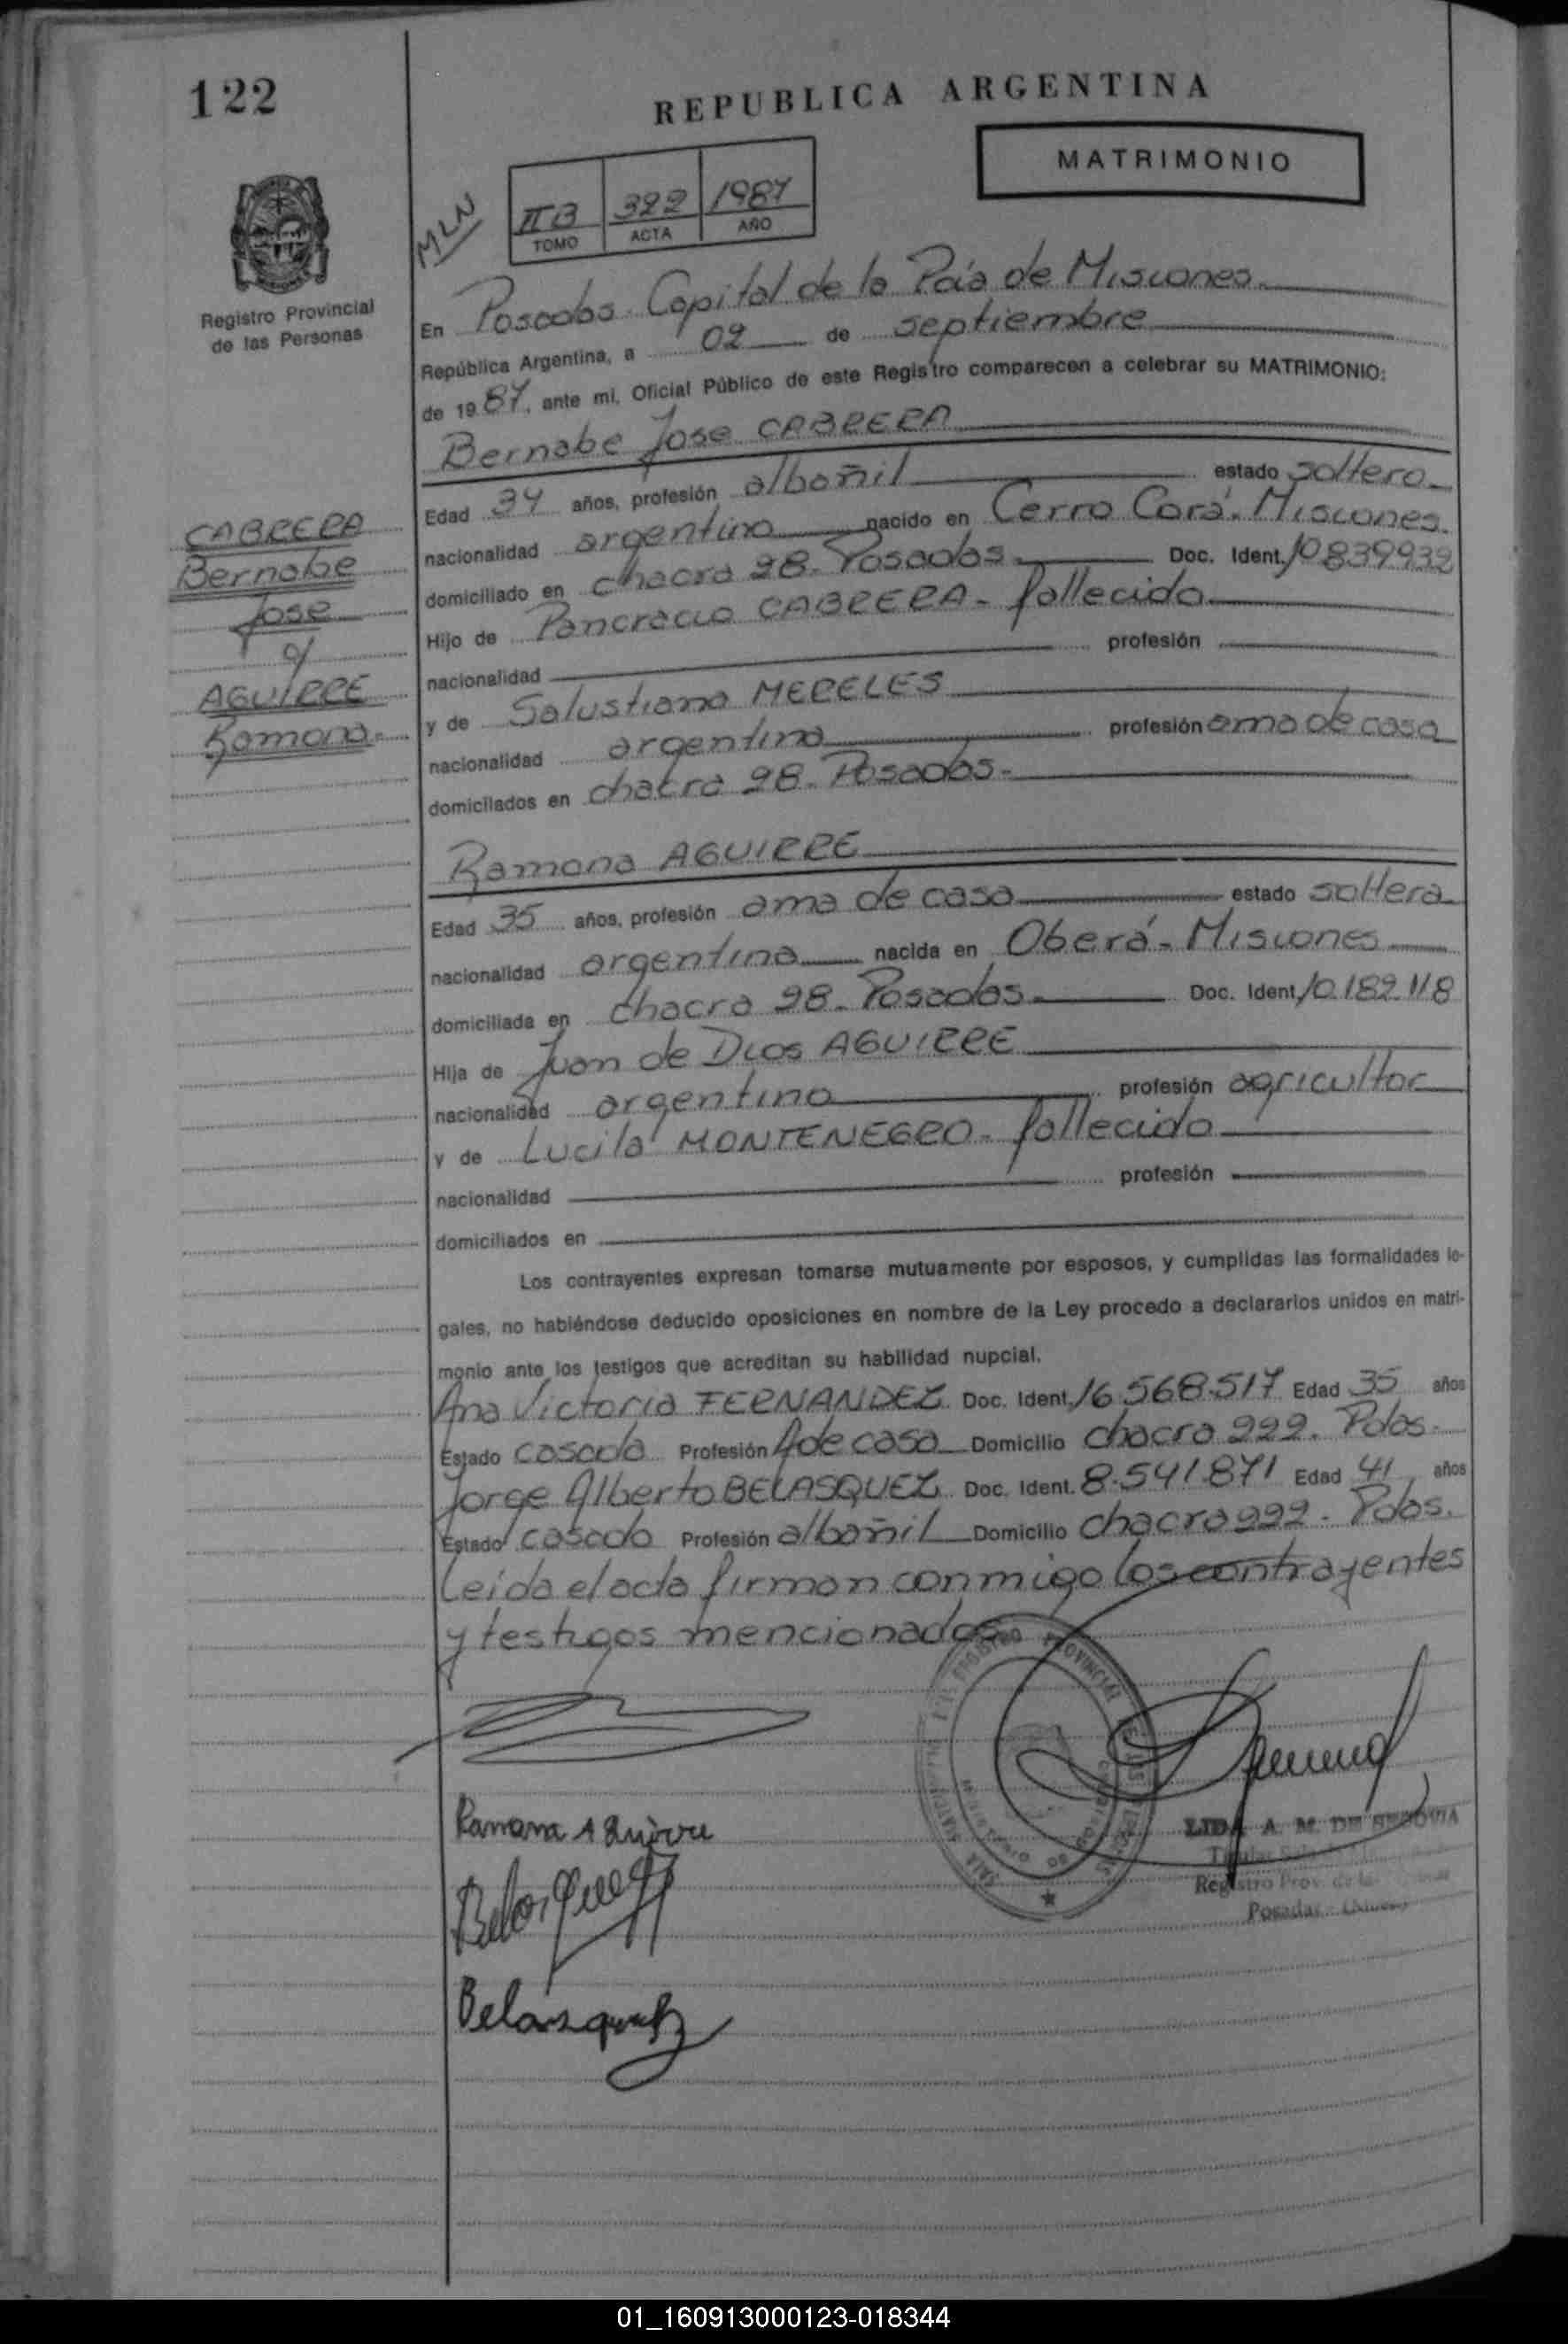 122
REPUBLICA ARGENTINA
MATRIMONIO
MLN
II B 322 1987
TOMO ACTA AÑO
Registro Provincial
de las Personas
En Posadas. Capital de la Pcia de Misiones
República Argentina, a 02 de septiembre
de 1987, ante mi, Oficial Público de este Registro comparecen a celebrar su MATRIMONIO:
Bernabe Jose CABRERA
CABRERA
Bernabe
Jose
c/
AGUIRRE
Ramona.
Edad 34 años, profesión albañil estado soltero
nacionalidad argentino nacido en Cerro Corá. Misiones.
domiciliado en chacra 98. Posadas. Doc. Ident. 10839932
Hijo de Pancracio CABRERA - fallecido
nacionalidad profesión
y de Salustiana MERELES
nacionalidad argentina profesión ama de casa
domicilados en chacra 98. Posadas.
Ramona AGUIRRE
Edad 35 años, profesión ama de casa estado soltera
nacionalidad argentina nacida en Oberá - Misiones
domiciliada en chacra 98. Posadas. Doc. Ident. 10.182.118
Hija de Juan de Dios AGUIRRE
nacionalidad argentino profesión agricultor
y de Lucila MONTENEGRO - fallecida
nacionalidad profesión
domiciliados en
Los contrayentes expresan tomarse mutuamente por esposos, y cumplidas las formalidades le-
gales, no habiéndose deducido oposiciones en nombre de la Ley procedo a declararlos unidos en matri-
monio ante los testigos que acreditan su habilidad nupcial.
Ana Victoria FERNANDEZ Doc. Ident. 16.568.517 Edad 35 años
Estado casada Profesión A de casa Domicilio chacra 222. Pdas.
Jorge Alberto BELASQUEZ Doc. Ident. 8.541.871 Edad 41 años
Estado casado Profesión albañil Domicilio chacra 222. Pdas.
Leída el acta firman conmigo los contrayentes
y testigos mencionados
Ramona Aguirre
Belasquez
LIDA A. M. DE SEGOVIA
Registro Prov. de las
Posadas
01_160913000123-018344